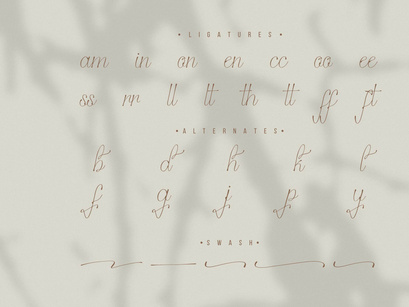 • LIGATURES •
am in on en cc oo ee
ss rr ll lt th tt ff ft
•ALTERNATES•
b d h k l
f g j p y
•SWASH•